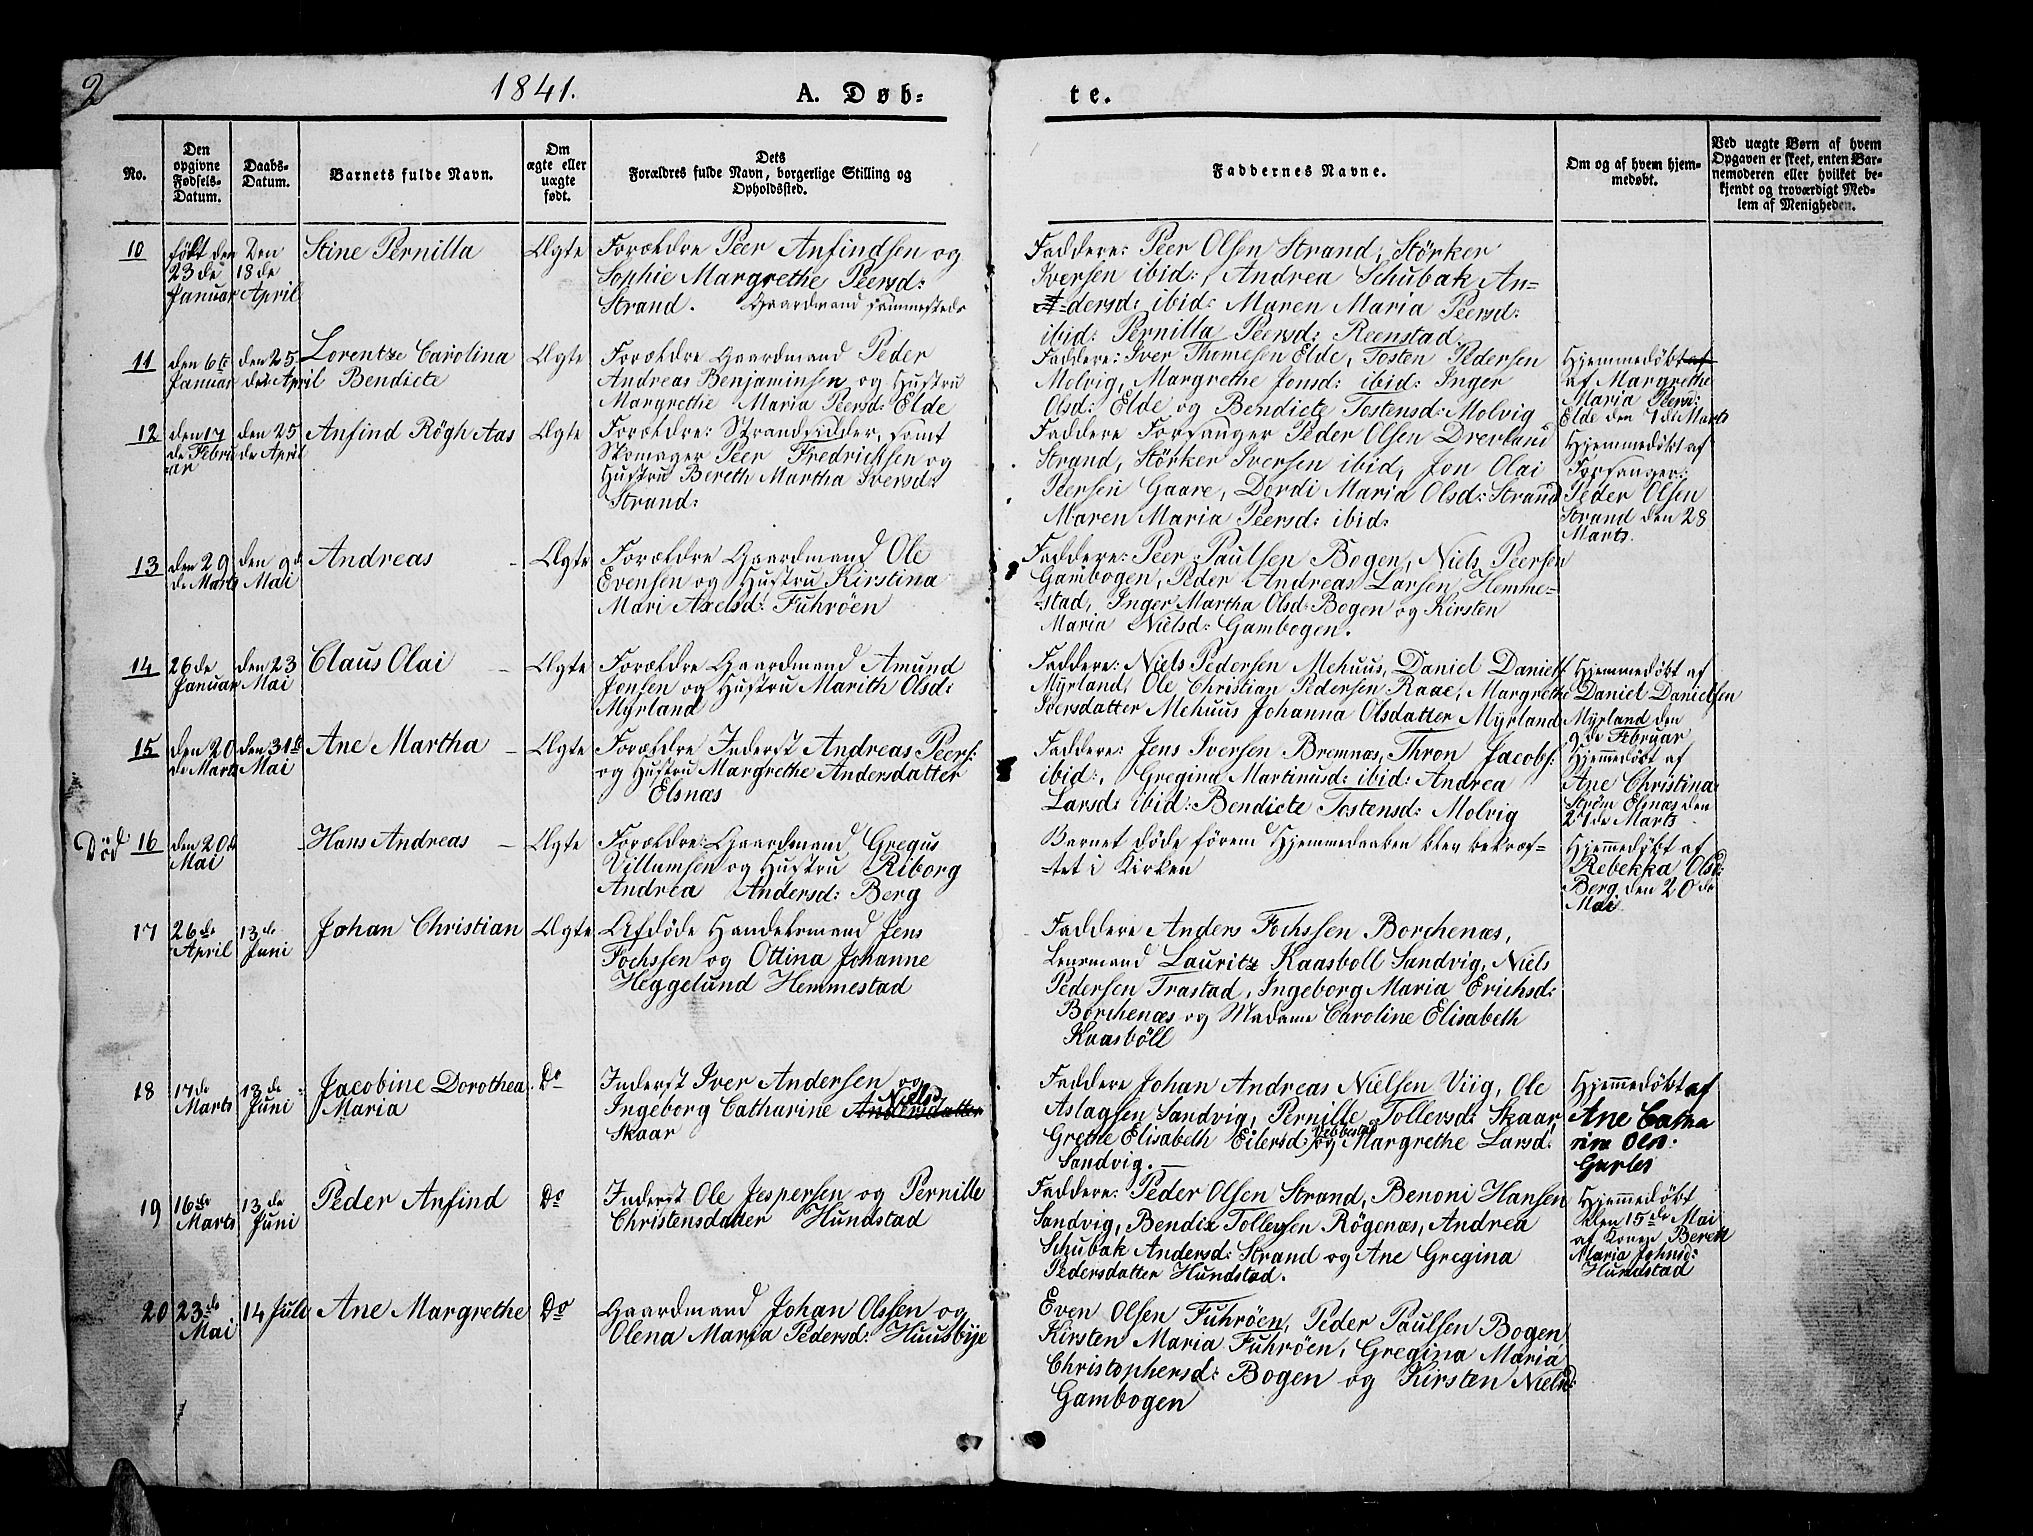 2
1841.
A. Døb-
te.
No.
Den
opgivne
Fødsels-
Datum.
Daabs-
Datum.
Barnets fulde Navn.
Om
ægte eller
uægte
født.
Dets
Forældres fulde Navn, borgerlige Stilling og
Opholdssted.
Faddernes Navne.
Om og af hvem hjem-
medøbt.
Ved uægte Børn af hvem
Opgaven er skeet, enten Bar-
nemoderen eller hvilket be-
kjendt og troværdigt Med-
lem af Menigheden.
10
født den
23de
Januar
Den
18de
April
Stine Pernilla
Ægte
Forældre Peer Anfindsen og
Sophie Margrethe Peersd:
Strand. Gaardmand sammesteds
Faddere: Peer Olsen Strand, Störker
Iversen ibid:, Andrea Schubak An-
dersd: ibid: Maren Maria Peersd:
ibid: Pernilla Peersd: Reenstad.
11
den 6te
Januar
den 25
de April
Lorentze Carolina
Bendicte
Ægte
Forældre Gaardmand Peder
Andreas Benjaminsen og Hustru
Margrethe Maria Peersd: Elde
Faddere: Iver Thomesen Elde, Tosten Pedersen
Molvig, Margrethe Jonsd: ibid: Inger
Olsd: Elde og Bendicte Tostensd: Molvig
Hjemmedøbt af
af Margrethe
Maria Peersd:
Elde den 7de Marts
12
den 17
de Febru
ar
den 25
de April
Anfind Rögh Aas
Ægte
Forældre: Strandsidder, samt
Skomager Peer Fredricksen og
Hustru Bereth Martha Iversd:
Strand:
Faddere Forsanger Peder Olsen Drevland
Strand, Störker Iversen ibid, Jon Olai
Peersen Gaare, Dordi Maria Olsd: Strand
Maren Maria Peersd: ibid:
Hjemmedøbt af
Forsanger:
Peder Olsen
Strand den 28
Marts.
13
den 29
de Marts
den 9d
Mai
Andreas
Ægte
Forældre Gaardmand Ole
Evensen og Hustru Kirstina
Mari Axelsd: Fuhröen
Faddere: Peer Paulsen Bogen, Niels Peersen
Gambogen, Peder Andreas Larsen Hemme-
-stad, Inger Martha Olsd: Bogen og Kirsten
Maria Nielsd: Gambogen.
14
26de
Januar
den 23
Mai
Claus Olai
Ægte
Forældre Gaardmand Amund
Jonsen og Hustru Marith Olsd:
Myrland
Faddere: Niels Pedersen Mehuus, Daniel Daniels:
Myrland, Ole Christian Pedersen Raae, Margrethe
Iversdatter Mehuus Johanna Olsdatter Myrland
Hjemmedøbt af
Daniel Danielsen
Myrland den
9de Februar
15
den 20
de Marts
den 31t
Mai
Ane Martha
Ægte
Forældre Inderst Andreas Peers:
og Hustru Margrethe Andersdatter
Elsnæs
Faddere: Jens Iversen Bremnæs, Thron Jacobs:
ibid:, Gregina Martinusd: ibid: Andrea
Larsd: ibid: Bendicte Tostensd: Molvig
Hjemmedøbt af
Ane Christina
Strøm Elsnæs den
21de Marts
Død
16
den 20d
Mai
Hans Andreas
Ægte
Forældre: Gaardmand Gregus
Villumsen og Hustru Riborg
Andrea Andersd: Berg
Barnet döde förend Hjemmedaaben blev bekræf-
-tet i Kirken
Hjemmedøbt af
Rebekka Olsd:
Berg den 20de
Mai
17
26de
April
13de
Juni
Johan Christian
Ægte
Afdöde Handelsmand Jens
Fochssen og Ottina Johanne
Heggelund Hemmestad
Faddere Anders Fochssen Borchenæs,
Lensmand Lauritz Kaasboll Sandvig, Niels
Pedersen Trastad, Ingeborg Maria Erichsd:
Borchenæs og Madame Caroline Elisabeth
Kaasböll
18
17de
Marts
13de
Juni
Jacobine Dorothea
Maria
Do
Inderst Iver Andersen og
Nielsd.
Ingeborg Catharine Andersdatter
Skaar
Faddere Johan Andreas Nielsen Viig, Ole
Aslagsen Sandvig, Pernille Tollersd: Skaar
Grethe Elisabeth Eilersd: og Margrethe Larsd:
Sandvig.
Hjemmedøbt af
Ane Catha
rina Olsd:
19
16de
Marts
13de
Juni
Peder Anfind
Do
Inderst Ole Jespersen og Pernille
Christensdatter Hundstad
Faddere: Peder Olsen Strand, Benoni Hansen
Sandvig, Bendix Tollefsen Rögenæs, Andrea
Schubak Andersd: Strand og Ane Gregina
Pedersdatter Hundstad.
Hjemmedøbt
den 15de Mai
af Konen Bereth
Maria Johnsd:
Hundstad
20
23de
Mai
14 Juli
Ane Margrethe
Do
Gaardmand Johan Olssen og
Olena Maria Pedersd: Huusbye
Even Olsen Fuhröen, Peder Paulsen Bogen
Kirsten Maria Fuhröen, Gregina Maria
Christophersd: Bogen og Kirsten Nielsd:
Gambogen